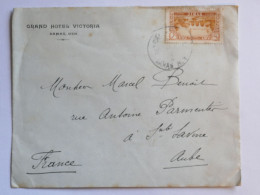 GRAND HOTEL VICTORIA
Monsieur Marcel Benoit
rue Antoine Parmentier
à Ste Savine
Aube
France